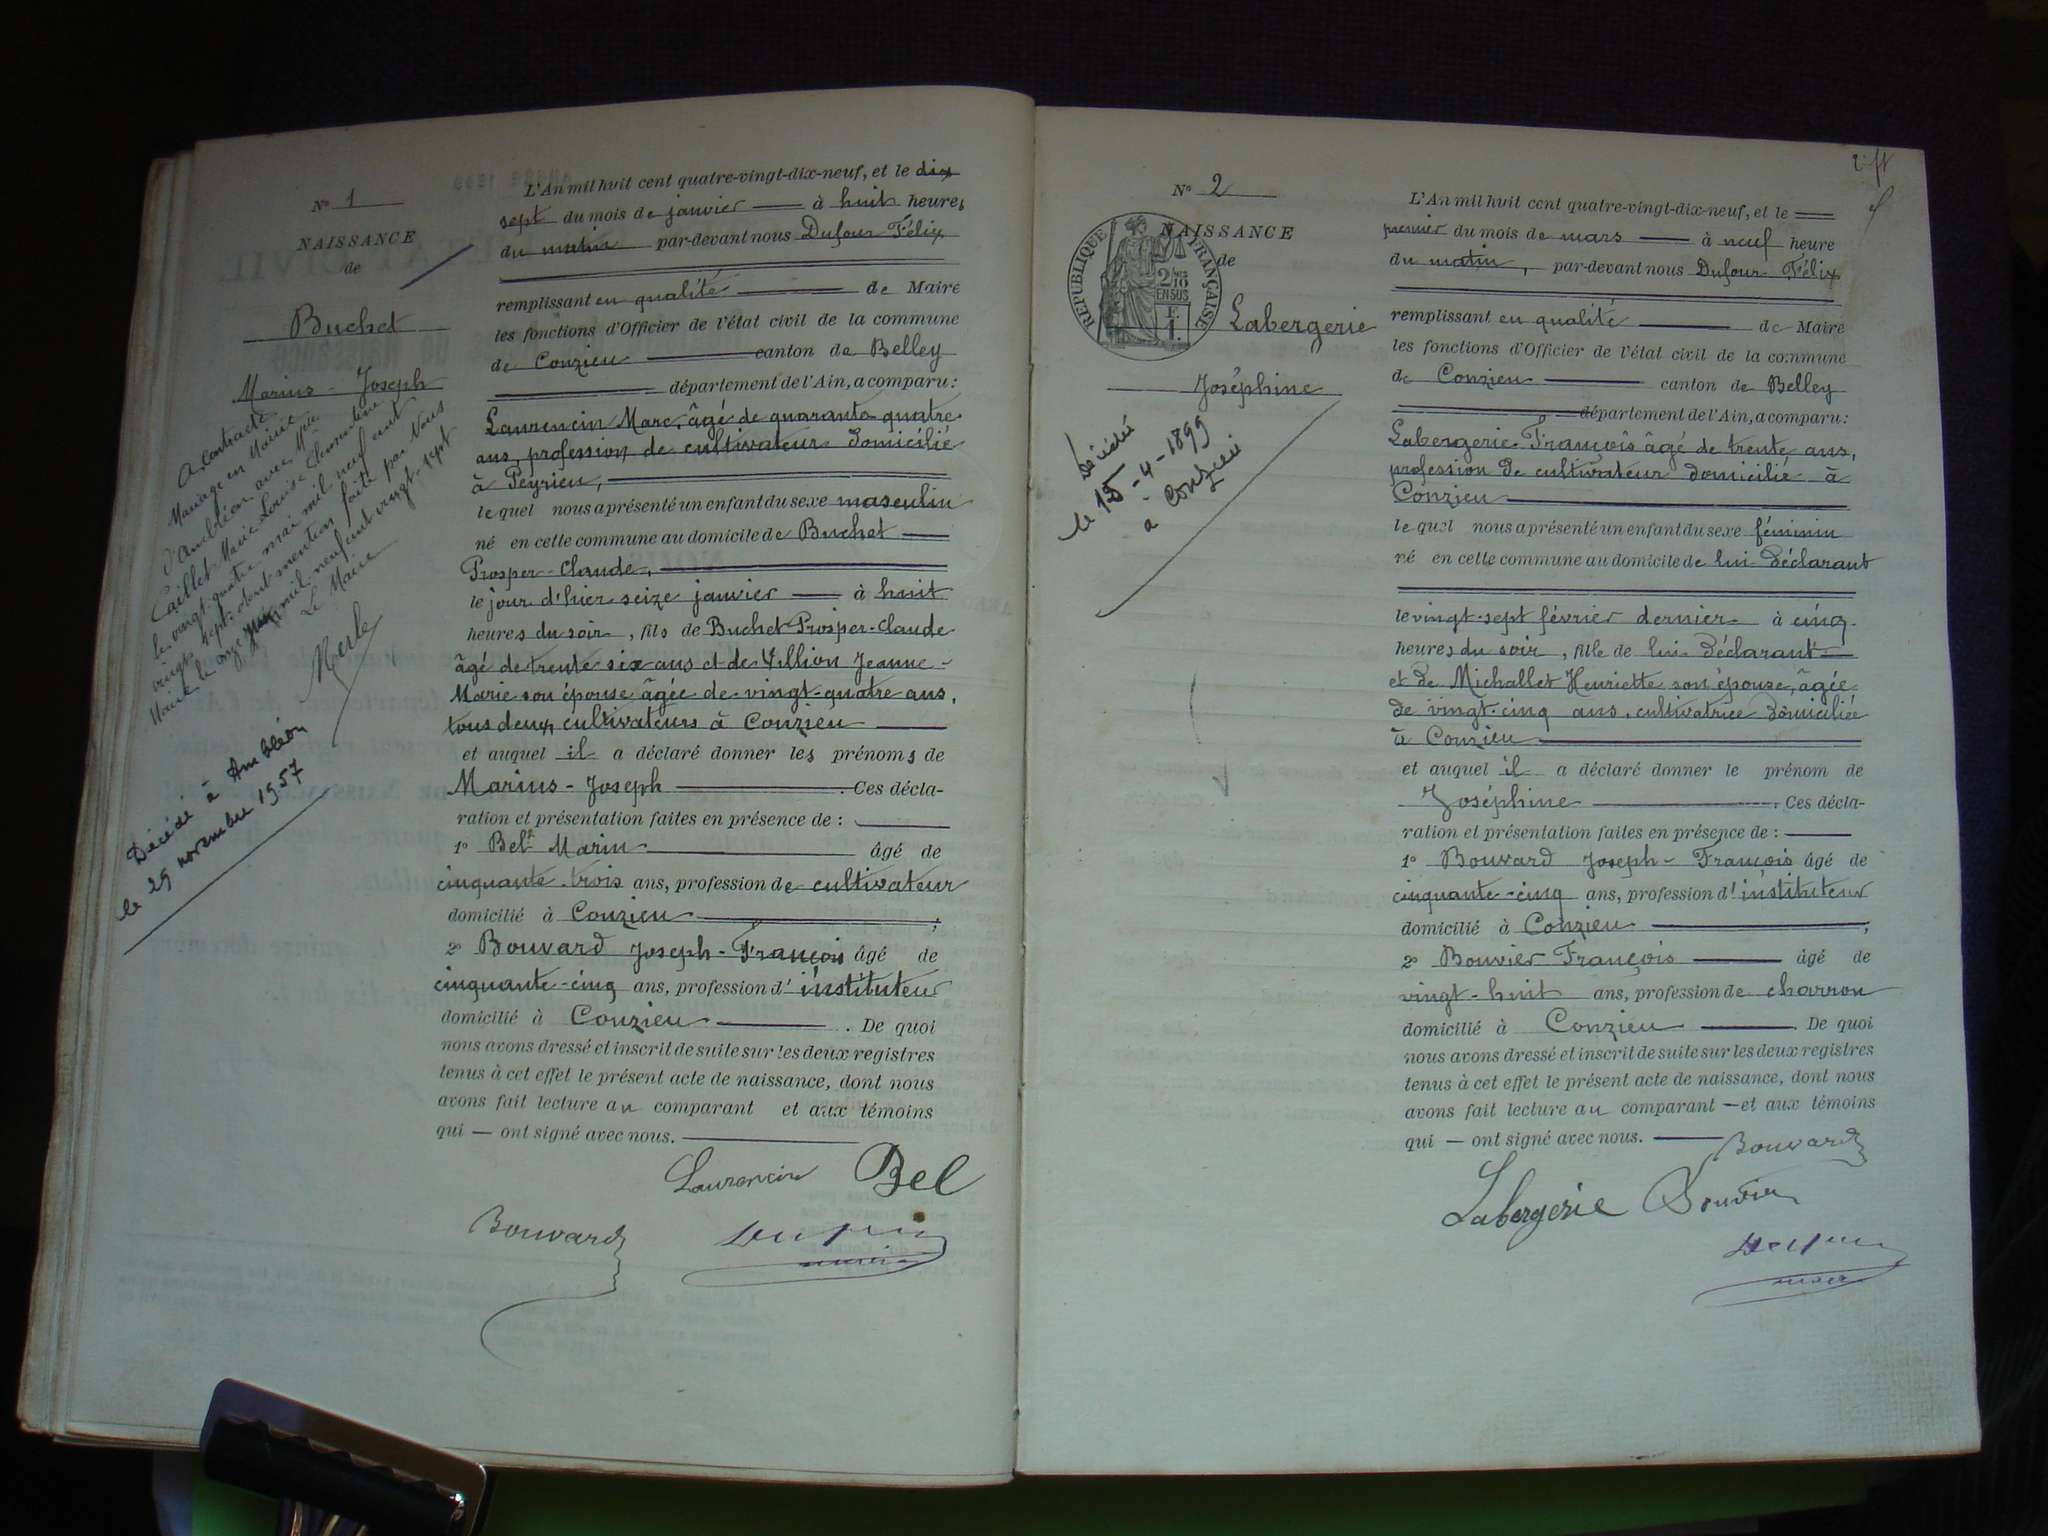 N° 1
NAISSANCE
de
Buchet
Marius - Joseph
A contracté
Mariage en Mairie
d'Ambléon avec Mlle
Caillet Marie Louise Clémentine
le vingt-quatre mai mil neuf cent
vingt-sept, dont mention faite par Nous
Maire le onze juin mil neuf cent vingt-sept
Le Maire
Merle
Décédé à Ambléon
le 29 novembre 1957
L'An mil huit cent quatre-vingt-dix-neuf, et le dix
sept du mois de janvier à huit heures
du matin par-devant nous Dufour Félix
remplissant en qualité de Maire
les fonctions d'Officier de l'état civil de la commune
de Conzieu canton de Belley
département de l'Ain, a comparu :
Laurencin Marc, âgé de quarante-quatre
ans, profession de cultivateur domicilié
à Peyrieu,
lequel nous a présenté un enfant du sexe masculin
né en cette commune au domicile de Buchet
Prosper-Claude,
le jour d'hier seize janvier à huit
heures du soir, fils de Buchet Prosper-Claude
âgé de trente six ans et de Vellion Jeanne-
Marie son épouse âgée de vingt-quatre ans,
tous deux cultivateurs à Conzieu
et auquel il a déclaré donner les prénoms de
Marius - Joseph . Ces décla-
ration et présentation faites en présence de :
1° Bel Marin âgé de
cinquante-trois ans, profession de cultivateur
domicilié à Conzieu ;
2° Bouvard Joseph-François âgé de
cinquante-cinq ans, profession d'instituteur
domicilié à Conzieu . De quoi
nous avons dressé et inscrit de suite sur les deux registres
tenus à cet effet le présent acte de naissance, dont nous
avons fait lecture au comparant et aux témoins
qui — ont signé avec nous.
Laurencin Bel
Bouvard
maire
2
N° 2
NAISSANCE
de
REPUBLIQUE FRANÇAISE
2/10
EN SUS
F.
1.
Labergerie
Joséphine
Décédée
le 15-4-1899
a Conzieu
L'An mil huit cent quatre-vingt-dix-neuf, et le
premier du mois de mars à neuf heure
du matin, par-devant nous Dufour Félix
remplissant en qualité de Maire
les fonctions d'Officier de l'état civil de la commune
de Conzieu canton de Belley
département de l'Ain, a comparu :
Labergerie François âgé de trente ans,
profession de cultivateur domicilié à
Conzieu
lequel nous a présenté un enfant du sexe féminin
né en cette commune au domicile de lui déclarant
le vingt-sept février dernier à cinq
heures du soir, fille de lui déclarant
et de Michallet Henriette son épouse, âgée
de vingt-cinq ans, cultivatrice domiciliée
à Conzieu
et auquel il a déclaré donner le prénom de
Joséphine . Ces décla-
ration et présentation faites en présence de :
1° Bouvard Joseph-François âgé de
cinquante-cinq ans, profession d'instituteur
domicilié à Conzieu ;
2° Bouvier François âgé de
vingt-huit ans, profession de charron
domicilié à Conzieu . De quoi
nous avons dressé et inscrit de suite sur les deux registres
tenus à cet effet le présent acte de naissance, dont nous
avons fait lecture au comparant — et aux témoins
qui — ont signé avec nous.
Bouvard
Labergerie Bouvier